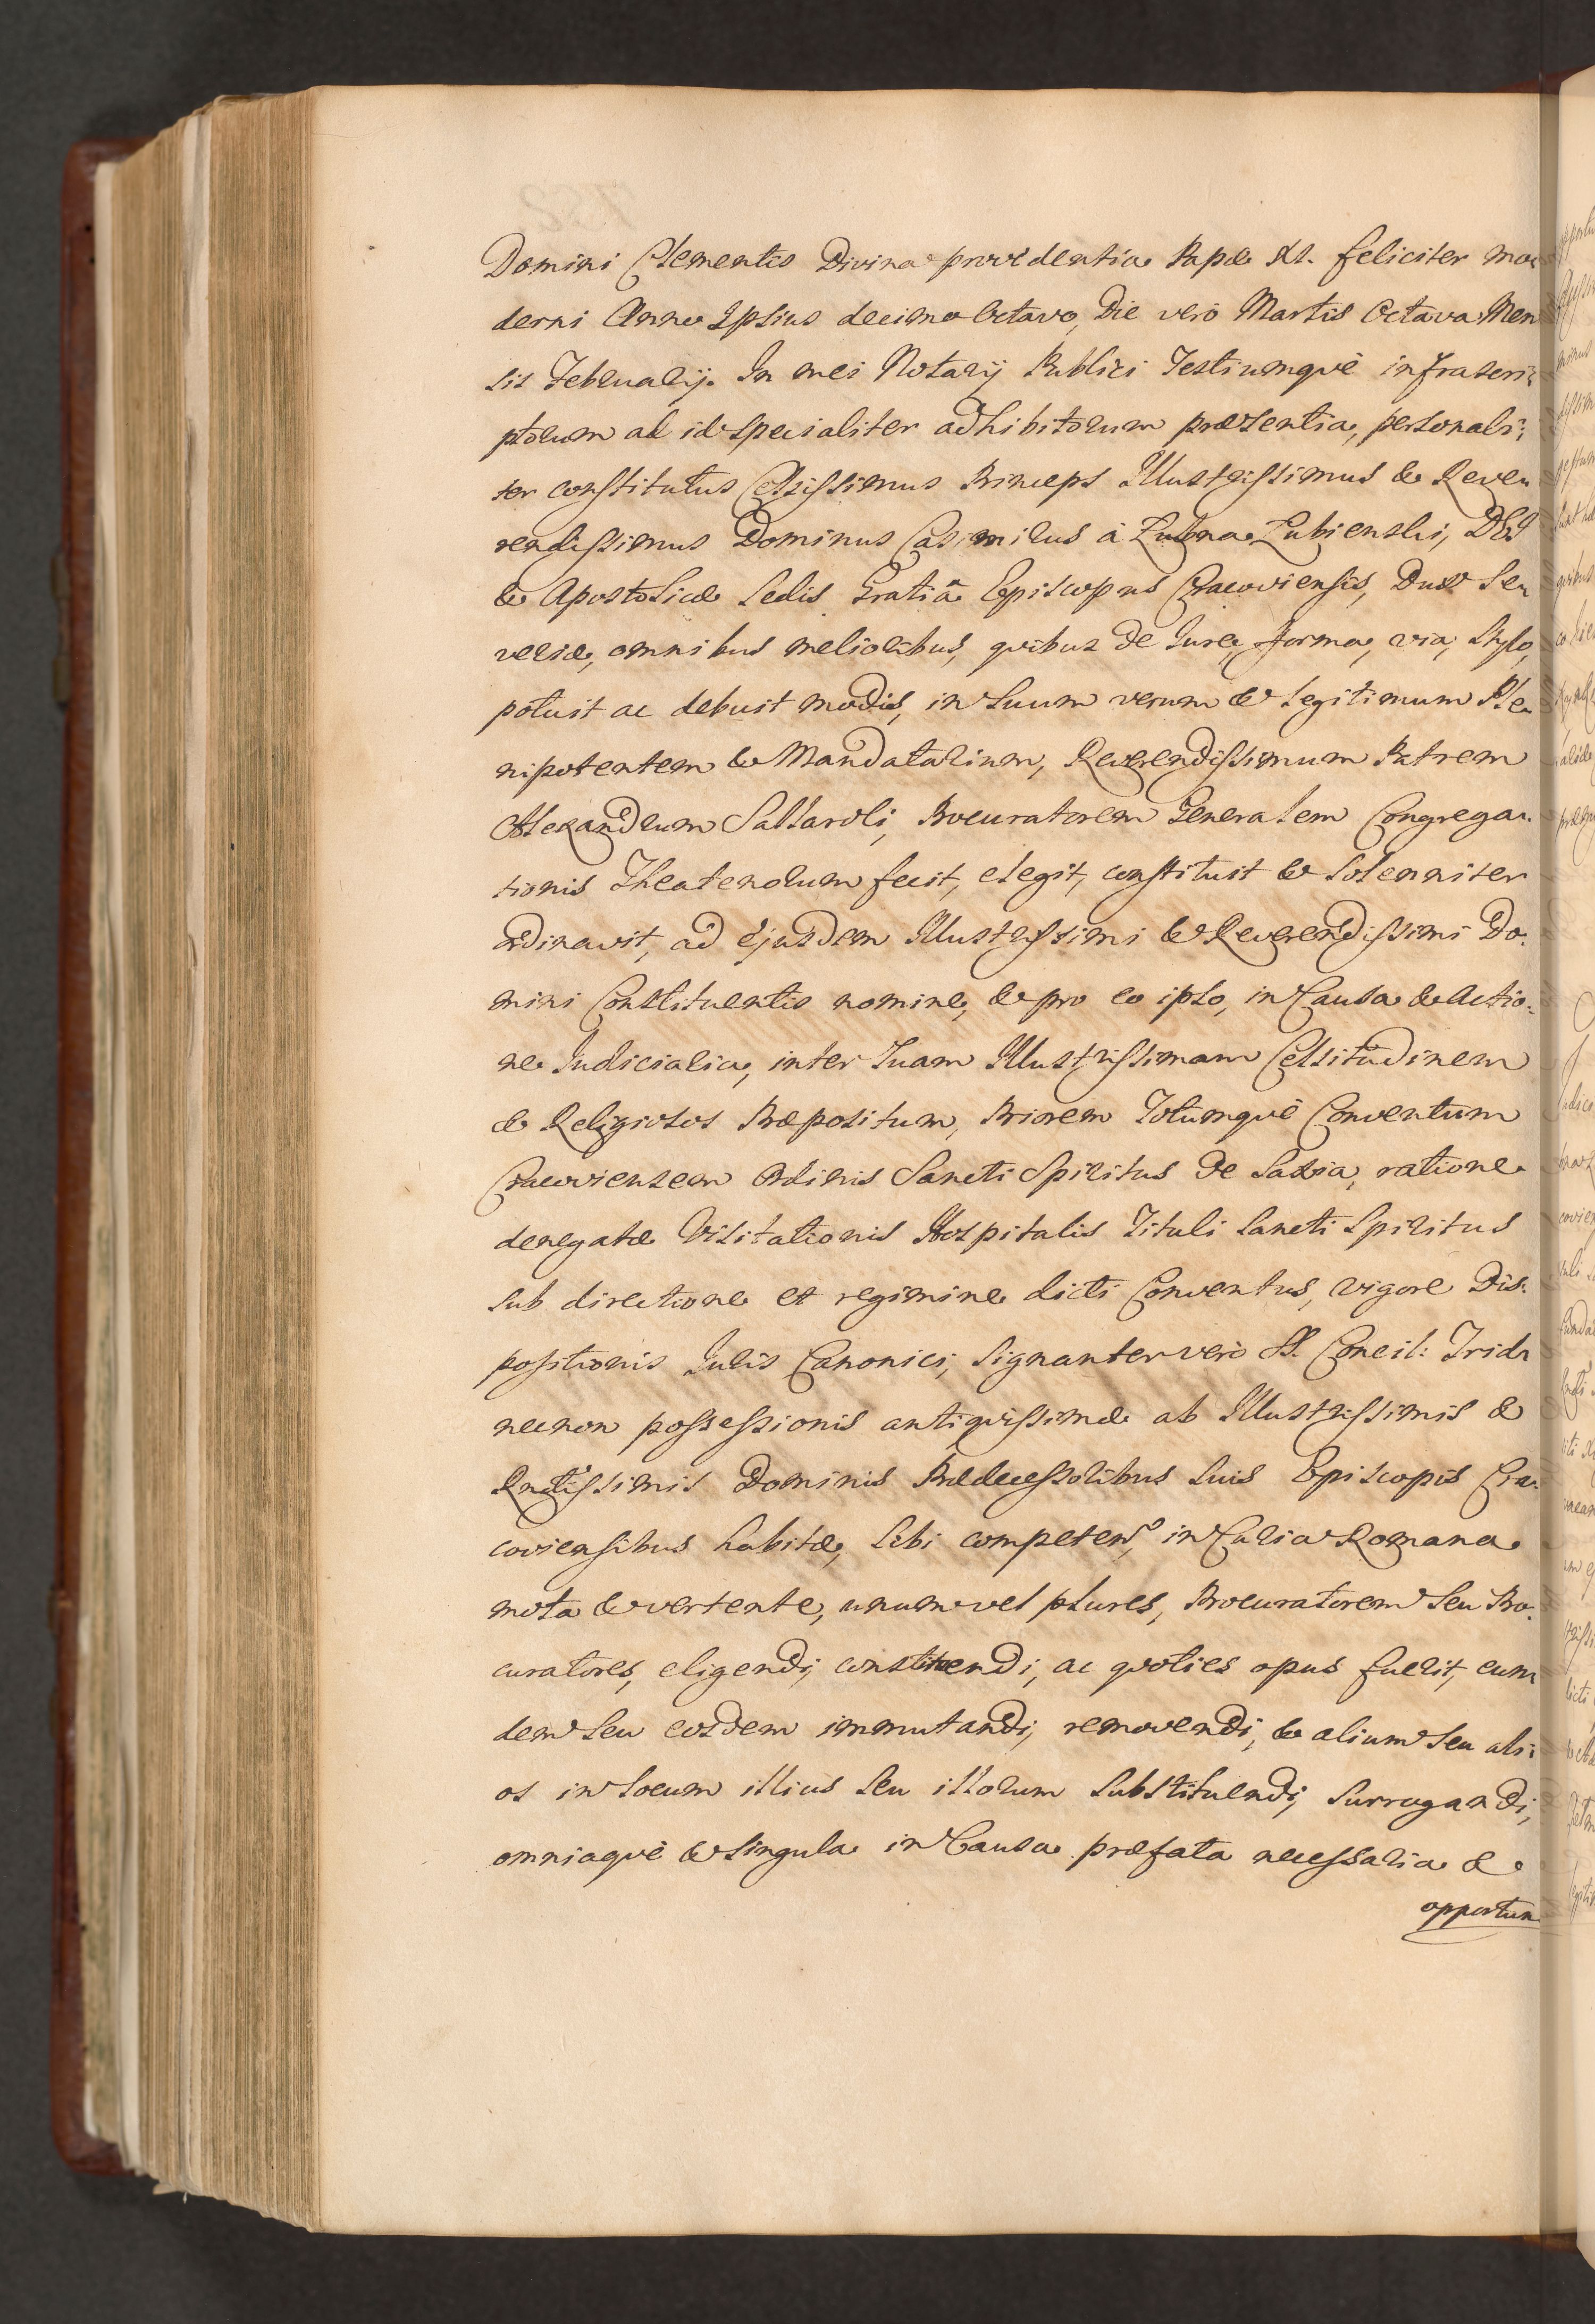 Domini Clementis Divina providentia Papæ XI. feliciter mo=
derni Anno Ipsius decimo Octavo, Die verò Martis Octava Men
sis Februarij. In mei Notarij Publici Testiumquè infrascri=
ptorum ad id specialiter adhibitorum præsentia, personali=
ter constitutus Celsissimus Princeps Illustrissimus & Reve=
rendissimus Dominus Casimirus à Łubna Łubienski, DEI
& Apostolicæ Sedis Gratiâ Episcopus Cracoviensis, Dux Se=
veriæ, omnibus melioribus, quibus de Iure, forma, via, Stylo,
potuit ac debuit modis, in Suum verum & legitimum Ple=
nipotentem & Mandatarium, Reverendissimum Patrem
Alexandrum Saltaroli, Procuratorem Generalem Congrega=
tionis Theatenorum fecit, elegit, constituit & Solenniter
ordinavit, ad ejusdem Illustrissimi & Reverendissimi Do=
mini Constituentis nomine, & pro eo ipso, in Causa & Actio=
ne Judiciaria, inter Suam Illustrissimam Celsitudinem
& Religiosos Præpositum, Priorem Totumquè Conventum
Cracoviensem Ordinis Sancti Spiritus de Saxia, ratione
denegatæ Visitationis Hospitalis Tituli Sancti Spiritus
sub directione et regimine dicti Conventus, vigore Dis=
positionis Juris Canonici, Signanter verò SS. Concil: Trid:
necnon possessionis antiquissimæ ab Illustrissimis &
Rndissimis Dominis Prædecessoribus Suis Episcopis Cra=
coviensibus habitæ, Sibi competen, in Curia Romana
mota & vertente, unum vel plures, Procuratorem Seu Pro=
curatores, eligendi, constituendi, ac quoties opus fuerit, eun
dem Seu eosdem immutandi, removendi, & alium Seu ali=
os in locum illius Seu illorum Substituendi, Surrogandi,
omniaquè & Singula in Causa præfata necessaria &
opportun